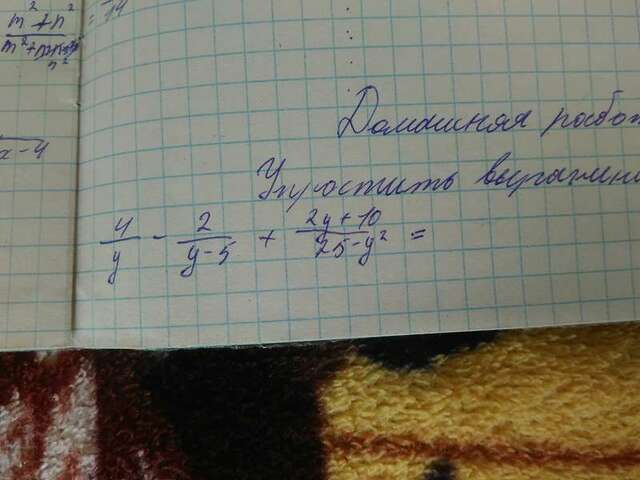 m² + n²
= 14
a - 4
Домашняя работ
Упростить выражени
4/y - 2/(y-5) + (2y+10)/(25-y²) =